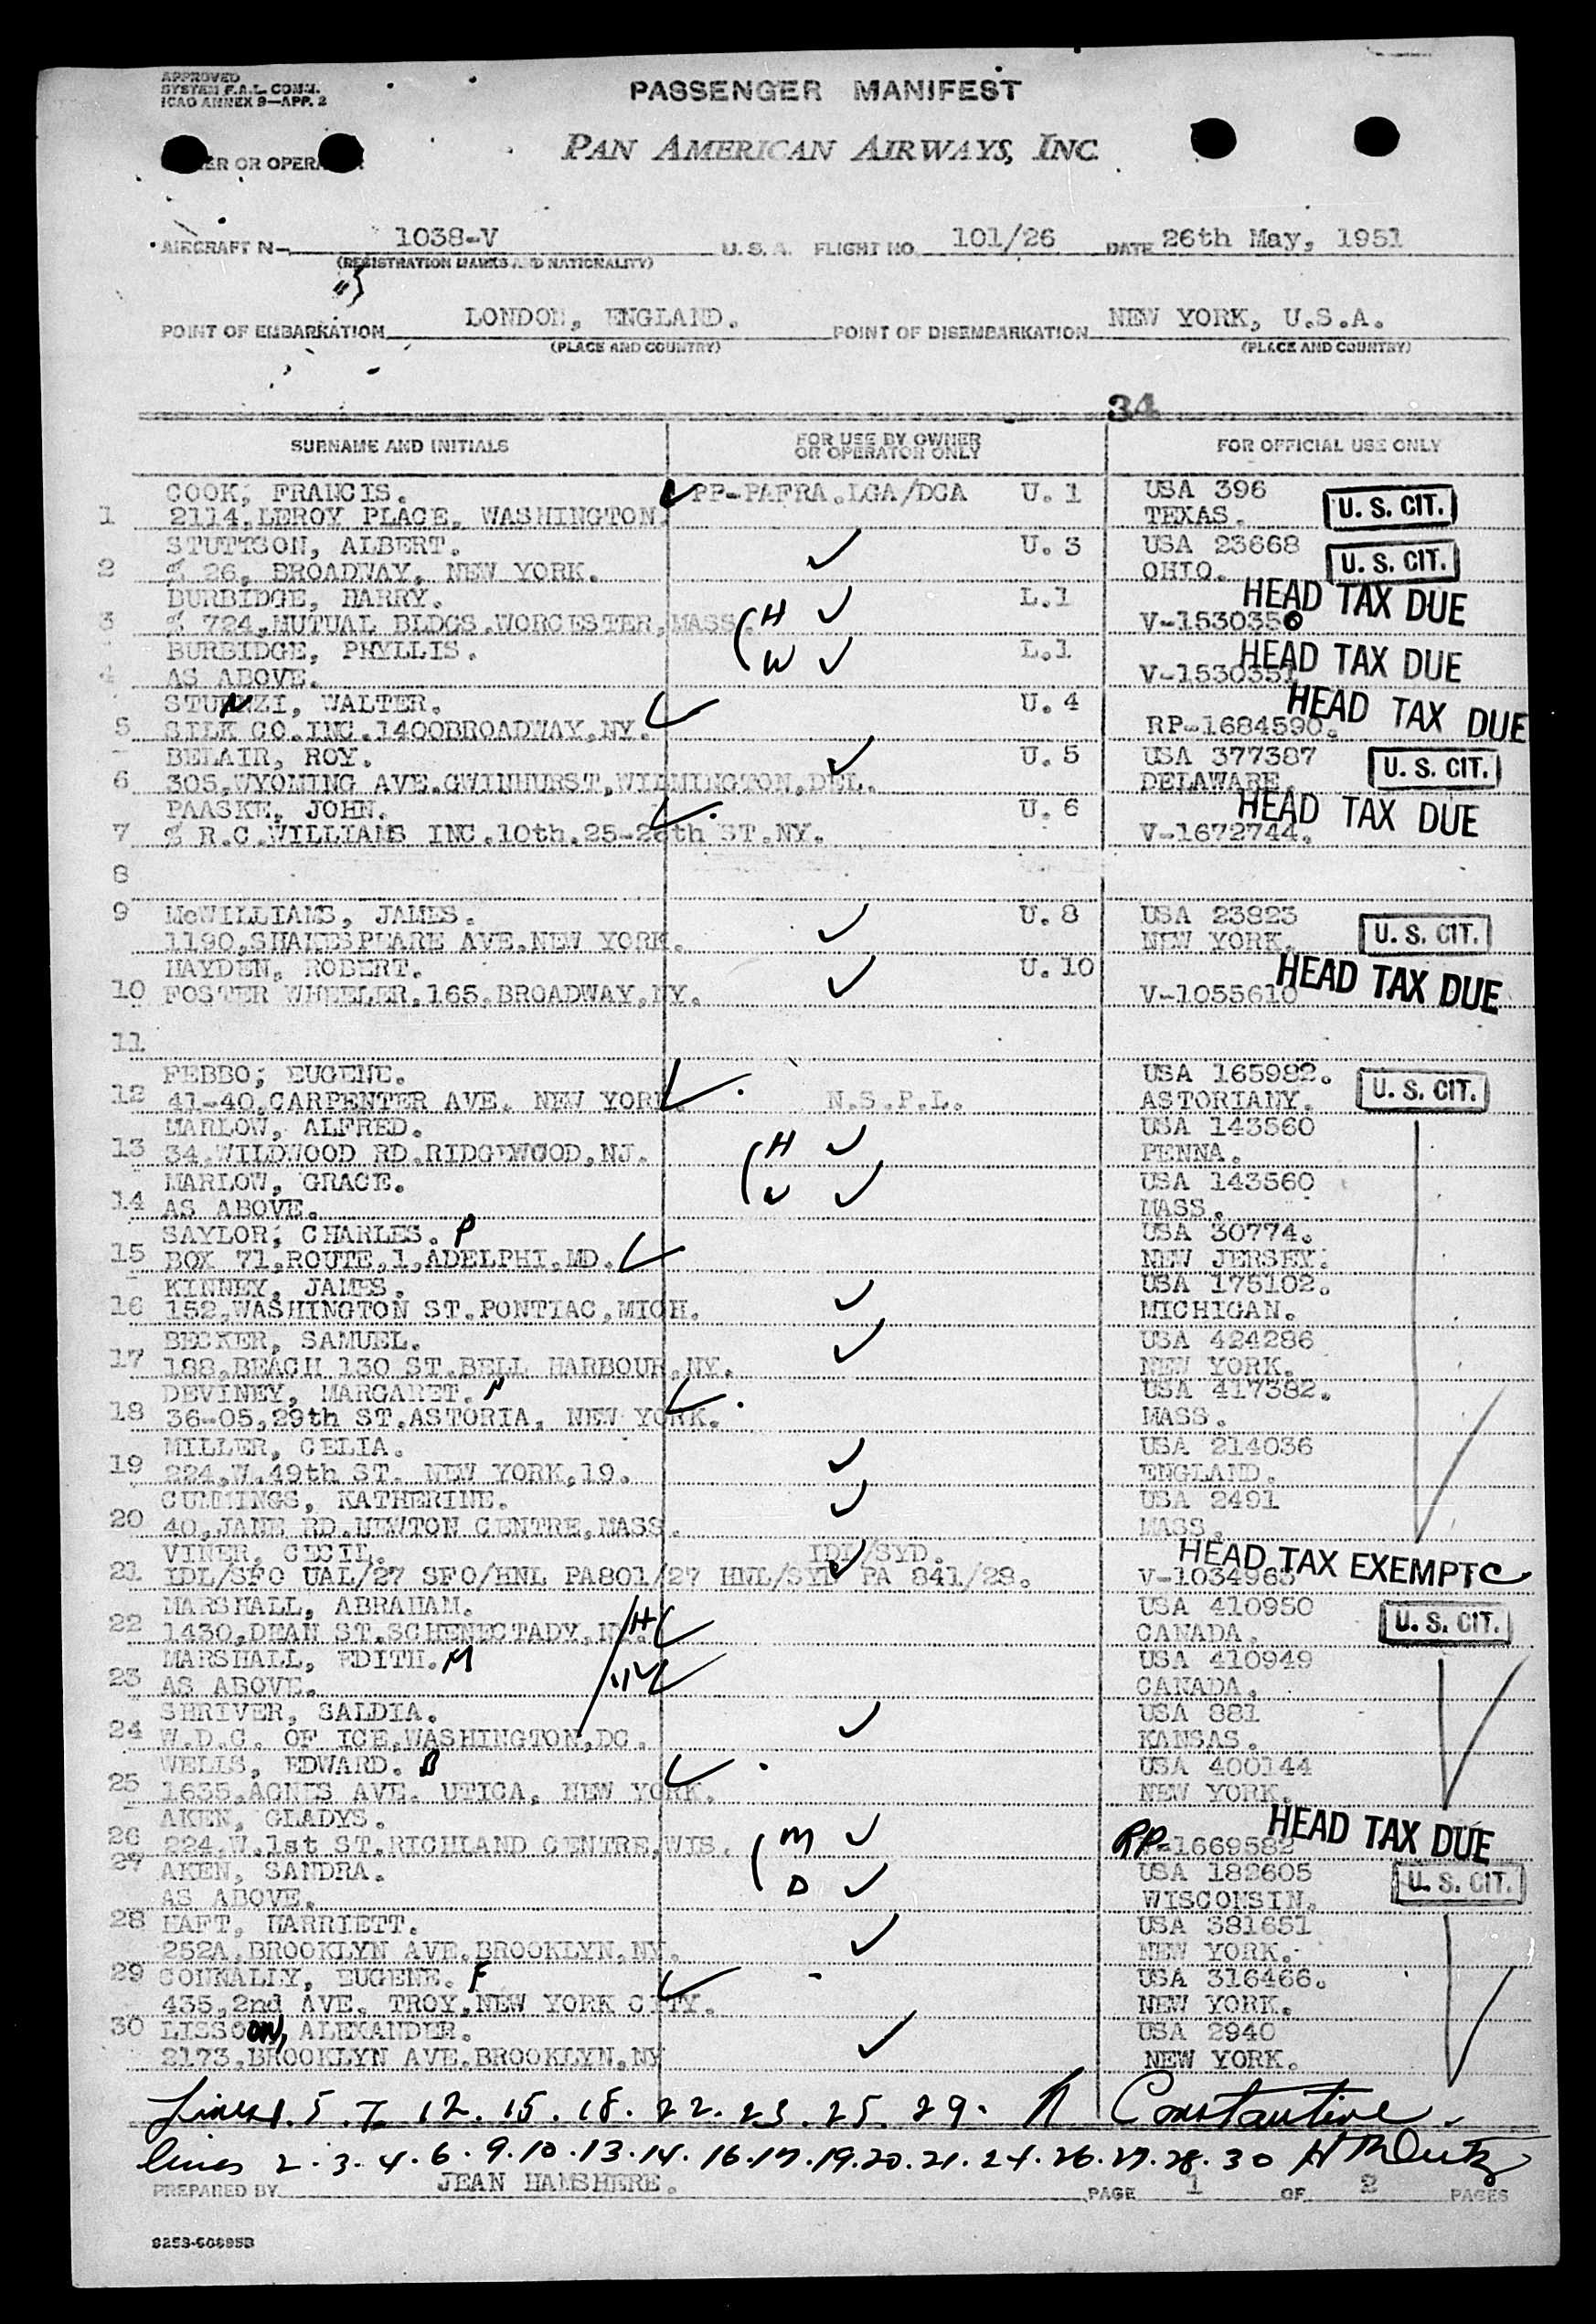 APPROVED
SYSTEM F.A.L. COMM.
ICAO ANNEX 9—APP. 2
PASSENGER MANIFEST
PAN AMERICAN AIRWAYS, INC.
ER OR OPERA
AIRCRAFT N— 1038-V U.S.A. FLIGHT NO. 101/26 DATE 26th May, 1951
(REGISTRATION MARKS AND NATIONALITY)
POINT OF EMBARKATION LONDON, ENGLAND. POINT OF DISEMBARKATION NEW YORK, U.S.A.
(PLACE AND COUNTRY) (PLACE AND COUNTRY)
34
SURNAME AND INITIALS FOR USE BY OWNER OR OPERATOR ONLY FOR OFFICIAL USE ONLY
COOK, FRANCIS. PP-PAFRA.LGA/DCA U.1 USA 396
1 2114,LEROY PLACE, WASHINGTON. TEXAS. U. S. CIT.
STUTTSON, ALBERT. U.3 USA 23668
2 % 26, BROADWAY, NEW YORK. OHIO. U. S. CIT.
BURBIDGE, HARRY. L.1 HEAD TAX DUE
3 % 724,MUTUAL BLDGS.WORCESTER,MASS. H V-1530350
BURBIDGE, PHYLLIS. L.1 HEAD TAX DUE
4 AS ABOVE. W V-1530351
STUNZI, WALTER. U.4 HEAD TAX DUE
5 SILK CO.INC.1400BROADWAY,NY. RP-1684590.
BELAIR, ROY. U.5 USA 377387 U. S. CIT.
6 305,WYOMING AVE.GWINHURST,WILMINGTON,DEL. DELAWARE.
PAASKE, JOHN. U.6 HEAD TAX DUE
7 % R.C.WILLIAMS INC.10th.25-26th ST.NY. V-1672744.
8
9 McWILLIAMS, JAMES. U.8 USA 23823
1190,SHAKESPEARE AVE.NEW YORK. NEW YORK. U. S. CIT.
HAYDEN, ROBERT. U.10 HEAD TAX DUE
10 FOSTER WHEELER,165,BROADWAY,NY. V-1055610
11
FEBBO; EUGENE. USA 165982.
12 41-40,CARPENTER AVE. NEW YORK. N.S.P.L. ASTORIANY. U. S. CIT.
MARLOW, ALFRED. H USA 143560
13 34,WILDWOOD RD.RIDGEWOOD,NJ. PENNA.
MARLOW, GRACE. W USA 143560
14 AS ABOVE. MASS.
SAYLOR, CHARLES. P USA 30774.
15 BOX 71,ROUTE,1,ADELPHI,MD. NEW JERSEY.
KINNEY, JAMES. USA 175102.
16 152,WASHINGTON ST.PONTIAC,MICH. MICHIGAN.
BECKER, SAMUEL. USA 424286
17 188,BEACH 130 ST.BELL HARBOUR,NY. NEW YORK.
DEVINEY, MARGARET. N USA 417382.
18 36-05,29th ST.ASTORIA, NEW YORK. MASS.
MILLER, CELIA. USA 214036
19 224,W.49th ST. NEW YORK,19. ENGLAND.
CUMMINGS, KATHERINE. USA 2491
20 40,JANE RD.NEWTON CENTRE,MASS. MASS.
VINER, CECIL. IDL/SYD. HEAD TAX EXEMPT C
21 IDL/SFO UAL/27 SFO/HNL PA801/27 HNL/SYD PA 841/28. V-1034963
MARSHALL, ABRAHAM. USA 410950
22 1430,DEAN ST.SCHENECTADY,NY. H CANADA. U. S. CIT.
MARSHALL, EDITH. M USA 410949
23 AS ABOVE. W CANADA.
SHRIVER, SALDIA. USA 881
24 W.D.C. OF ICE,WASHINGTON,DC. KANSAS.
WELLS, EDWARD. B USA 400144
25 1635,AGNES AVE. UTICA, NEW YORK. NEW YORK.
AKEN, GLADYS. M HEAD TAX DUE
26 224,W.1st ST.RICHLAND CENTRE,WIS. RP-1669582
27 AKEN, SANDRA. D USA 182605
AS ABOVE. WISCONSIN. U. S. CIT.
28 HAFT, HARRIETT. USA 381651
252A,BROOKLYN AVE.BROOKLYN,NY. NEW YORK.
29 CONNALLY, EUGENE. F USA 316466.
435,2nd AVE. TROY,NEW YORK CITY. NEW YORK.
30 LISSOON, ALEXANDER. USA 2940
2173,BROOKLYN AVE.BROOKLYN,NY NEW YORK.
Lines 1. 5. 7. 12. 15. 18. 22. 23. 25. 29. Constantine
lines 2. 3. 4. 6. 9. 10. 13. 14. 16. 17. 19. 20. 21. 24. 26. 27. 28. 30
PREPARED BY JEAN HAMSHERE. PAGE 1 OF 2 PAGES